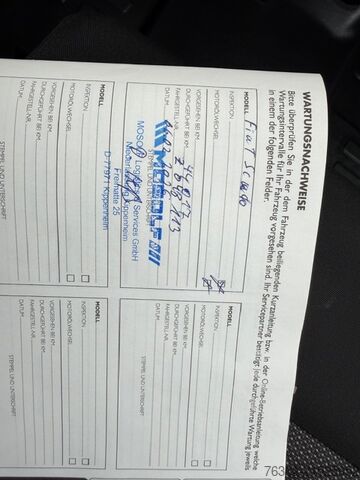 WARTUNGSNACHWEISE
Bitte überprüfen Sie in der dem Fahrzeug beiliegenden Kurzanleitung bzw. in der Online-Betriebsanleitung welche
Wartungsintervalle für Ihr Fahrzeug vorgesehen sind. Ihr Servicepartner bestätigt jede durchgeführte Wartung jeweils
in einem der folgenden Felder.
MODELL Fiat Scudo
INSPEKTION
MOTORÖLWECHSEL
VORGESEHEN BEI KM
DURCHGEFÜHRT BEI KM
FAHRGESTELL-NR.
DATUM
STEMPEL UND UNTERSCHRIFT
MOSOLF
MOSOLF Logistics & Services GmbH
Niederlassung Kippenheim
Freimatte 25
D-77971 Kippenheim
MODELL
INSPEKTION
MOTORÖLWECHSEL
VORGESEHEN BEI KM
DURCHGEFÜHRT BEI KM
FAHRGESTELL-NR.
STEMPEL UND UNTERSCHRIFT
MODELL
INSPEKTION
MOTORÖLWECHSEL
VORGESEHEN BEI KM
DURCHGEFÜHRT BEI KM
FAHRGESTELL-NR.
DATUM
STEMPEL UND UNTERSCHRIFT
MODELL
INSPEKTION
MOTORÖLWECHSEL
VORGESEHEN BEI KM
DURCHGEFÜHRT BEI KM
FAHRGESTELL-NR.
DATUM
STEMPEL UND UNTERSCHRIFT
763